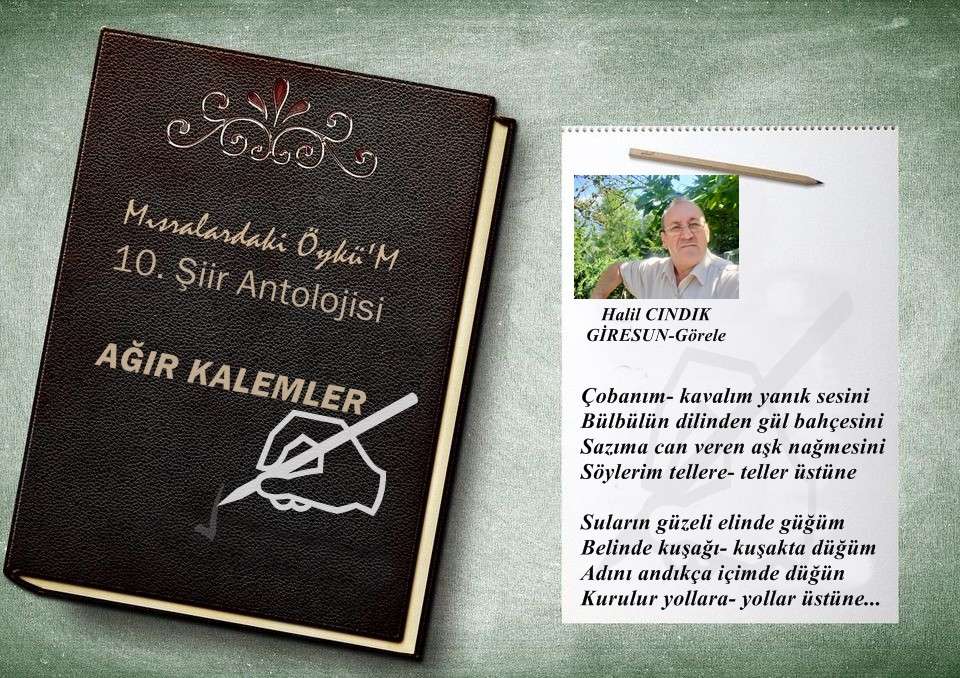 Mısralardaki Öykü'M
10. Şiir Antolojisi
AĞIR KALEMLER
Halil CINDIK
GİRESUN-Görele
Çobanım- kavalım yanık sesini
Bülbülün dilinden gül bahçesini
Sazıma can veren aşk nağmesini
Söylerim tellere- teller üstüne
Suların güzeli elinde güğüm
Belinde kuşağı- kuşakta düğüm
Adını andıkça içimde düğün
Kurulur yollara- yollar üstüne...